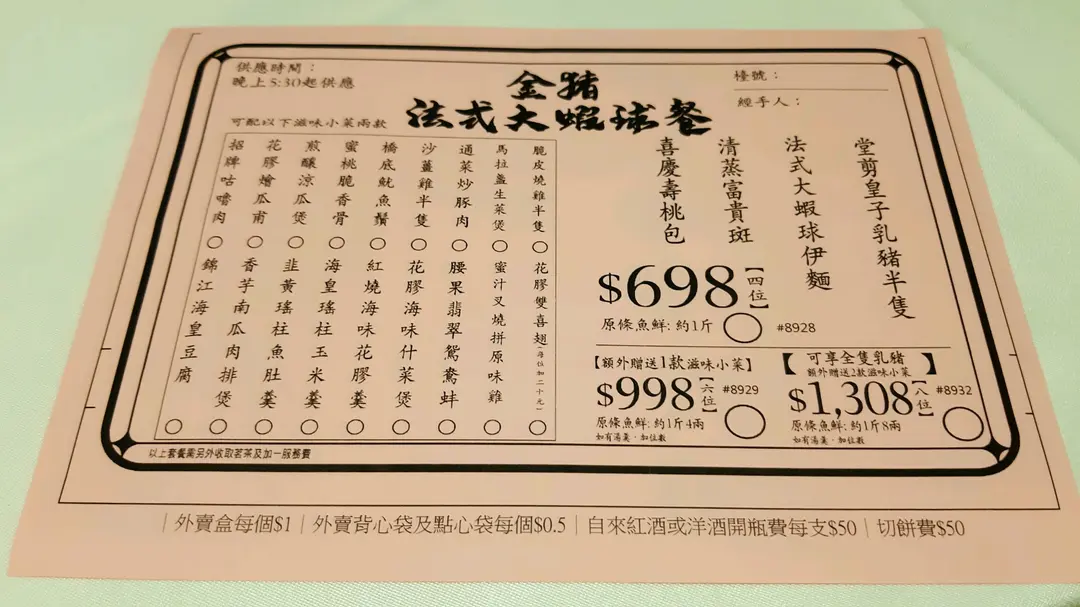 供應時間：
晚上5:30起供應
金豬
法式大蝦球餐
檯號：
經手人：
可配以下滋味小菜兩款
脆皮燒雞半隻
馬拉盞生菜煲
通菜炒豚肉
沙薑雞半隻
橋底魷魚鬚
蜜桃脆香骨
煎釀涼瓜煲
花膠燴瓜甫
招牌咕嚕肉
花膠雙喜翅(每位加二十元)
蜜汁叉燒拼原味雞
腰果翡翠鴛鴦蚌
花膠海味什菜煲
紅燒海味花膠羹
海皇瑤柱玉米羹
韭黃瑤柱魚肚羹
香芋南瓜肉排煲
錦江海皇豆腐
堂剪皇子乳豬半隻
法式大蝦球伊麵
清蒸富貴斑
喜慶壽桃包
$698【四位】
原條魚鮮：約1斤 #8928
【額外贈送1款滋味小菜】
$998【六位】 #8929
原條魚鮮：約1斤4兩
如有湯羹，加位數
【可享全隻乳豬
額外贈送2款滋味小菜】
$1,308【八位】 #8932
原條魚鮮：約1斤8兩
如有湯羹，加位數
以上套餐需另外收取茗茶及加一服務費
｜外賣盒每個$1｜外賣背心袋及點心袋每個$0.5｜自來紅酒或洋酒開瓶費每支$50｜切餅費$50